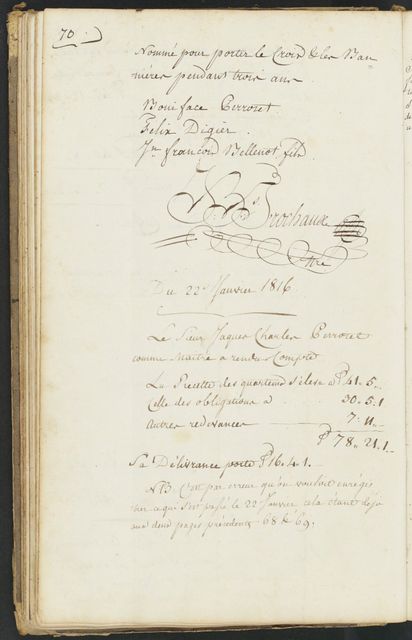 70.
Nommé pour porter le Croix & les Ban
nières pendant trois ans.
Boniface Perrotet
Felix Digier
Jn. francois Bellenot fils
Frochaux
Du 22e. Janvier 1816.
Le Sieur Jaques Charles Perrotet
comme Maitre a rendu Compte
La Recette des quarterud s'élese a ₽ 41. 5..
Celle des obligations a 30. 5. 1
Autres redevances 7. 11..
₽ 78.. 21. 1..
Sa Délivrance porte ₽ 16. 4. 1.
NB. C'est par erreur qu'on vouloit enregis
trer ce qui s'est passé le 22 Janvier cela étant déja
aux deux pages précédents 68 & 69.